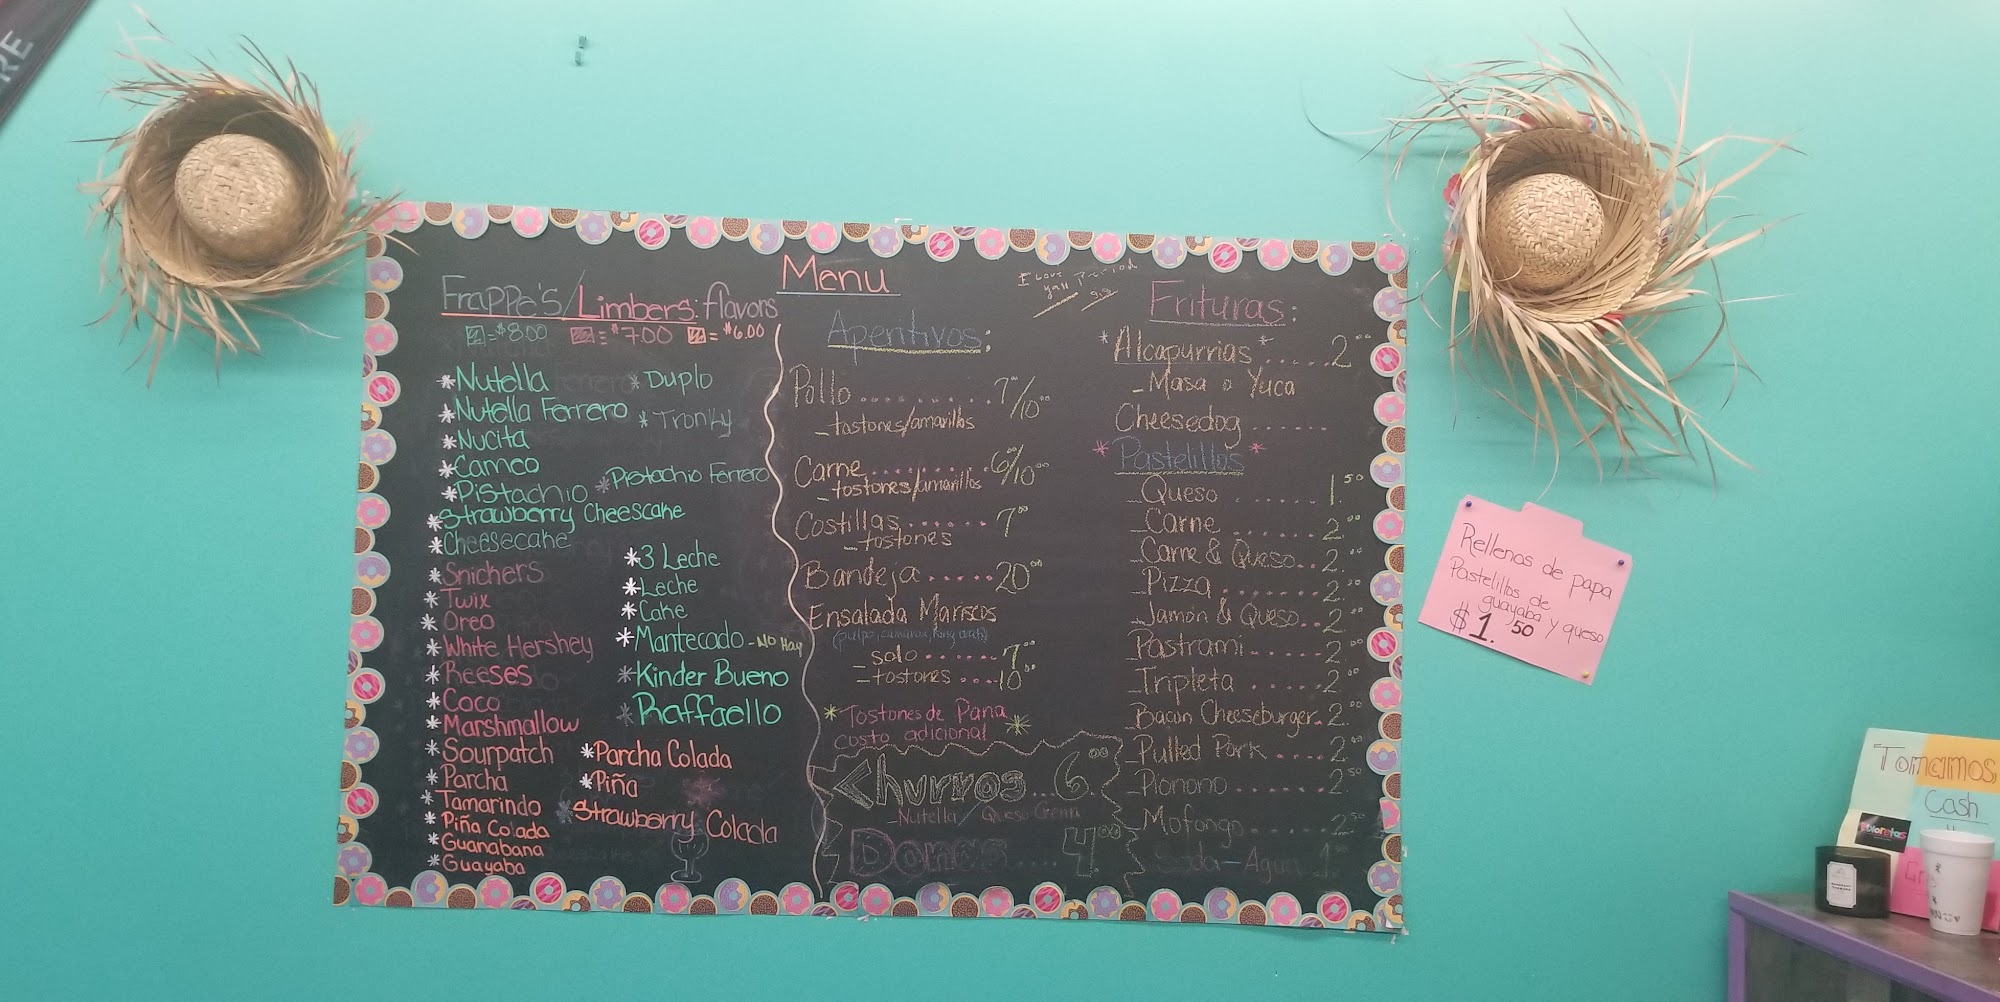 Menu
I Love
y'all
Frappe's/Limbers: flavors
= $8.00 = $7.00 = $6.00
*Nutella
*Duplo
*Nutella Ferrero
*Tronky
*Nucita
*Cameo
*Pistachio
*Pistachio Ferrero
*Strawberry Cheescake
*Cheesecake
*Snickers
*Twix
*Oreo
*White Hershey
*Reeses
*Coco
*Marshmallow
*Sourpatch
*Parcha
*Tamarindo
*Piña Colada
*Guanabana
*Guayaba
*3 Leche
*Leche
*Cake
*Mantecado - No Hay
*Kinder Bueno
*Raffaello
*Parcha Colada
*Piña
*Strawberry Colada
Aperitivos:
Pollo.........7.00/10.00
-tostones/amarillos
Carne.........6/10.00
-tostones/amarillos
Costillas......7.00
-tostones
Bandeja.....20.00
Ensalada Mariscos
-solo......7.00
-tostones...10.00
*Tostones de Pana *
costo adicional
Churros..6.00
-Nutella/Queso Crema
Donas....4.00
Frituras:
*Alcapurrias*.....2.00
-Masa o Yuca
Cheesedog......
*Pastelillos*
-Queso......1.50
-Carne......2.00
-Carne & Queso..2.00
-Pizza.......2.00
-Jamón & Queso..2.00
-Pastrami.....2.00
-Tripleta.....2.00
-Bacon Cheeseburger.2.00
-Pulled Pork....2.00
-Pionono......2.50
-Mofongo.....2.50
Soda-Agua 1.00
Rellenos de papa
Pastelillos de
guayaba y queso
$1.50
Tomamos
Cash